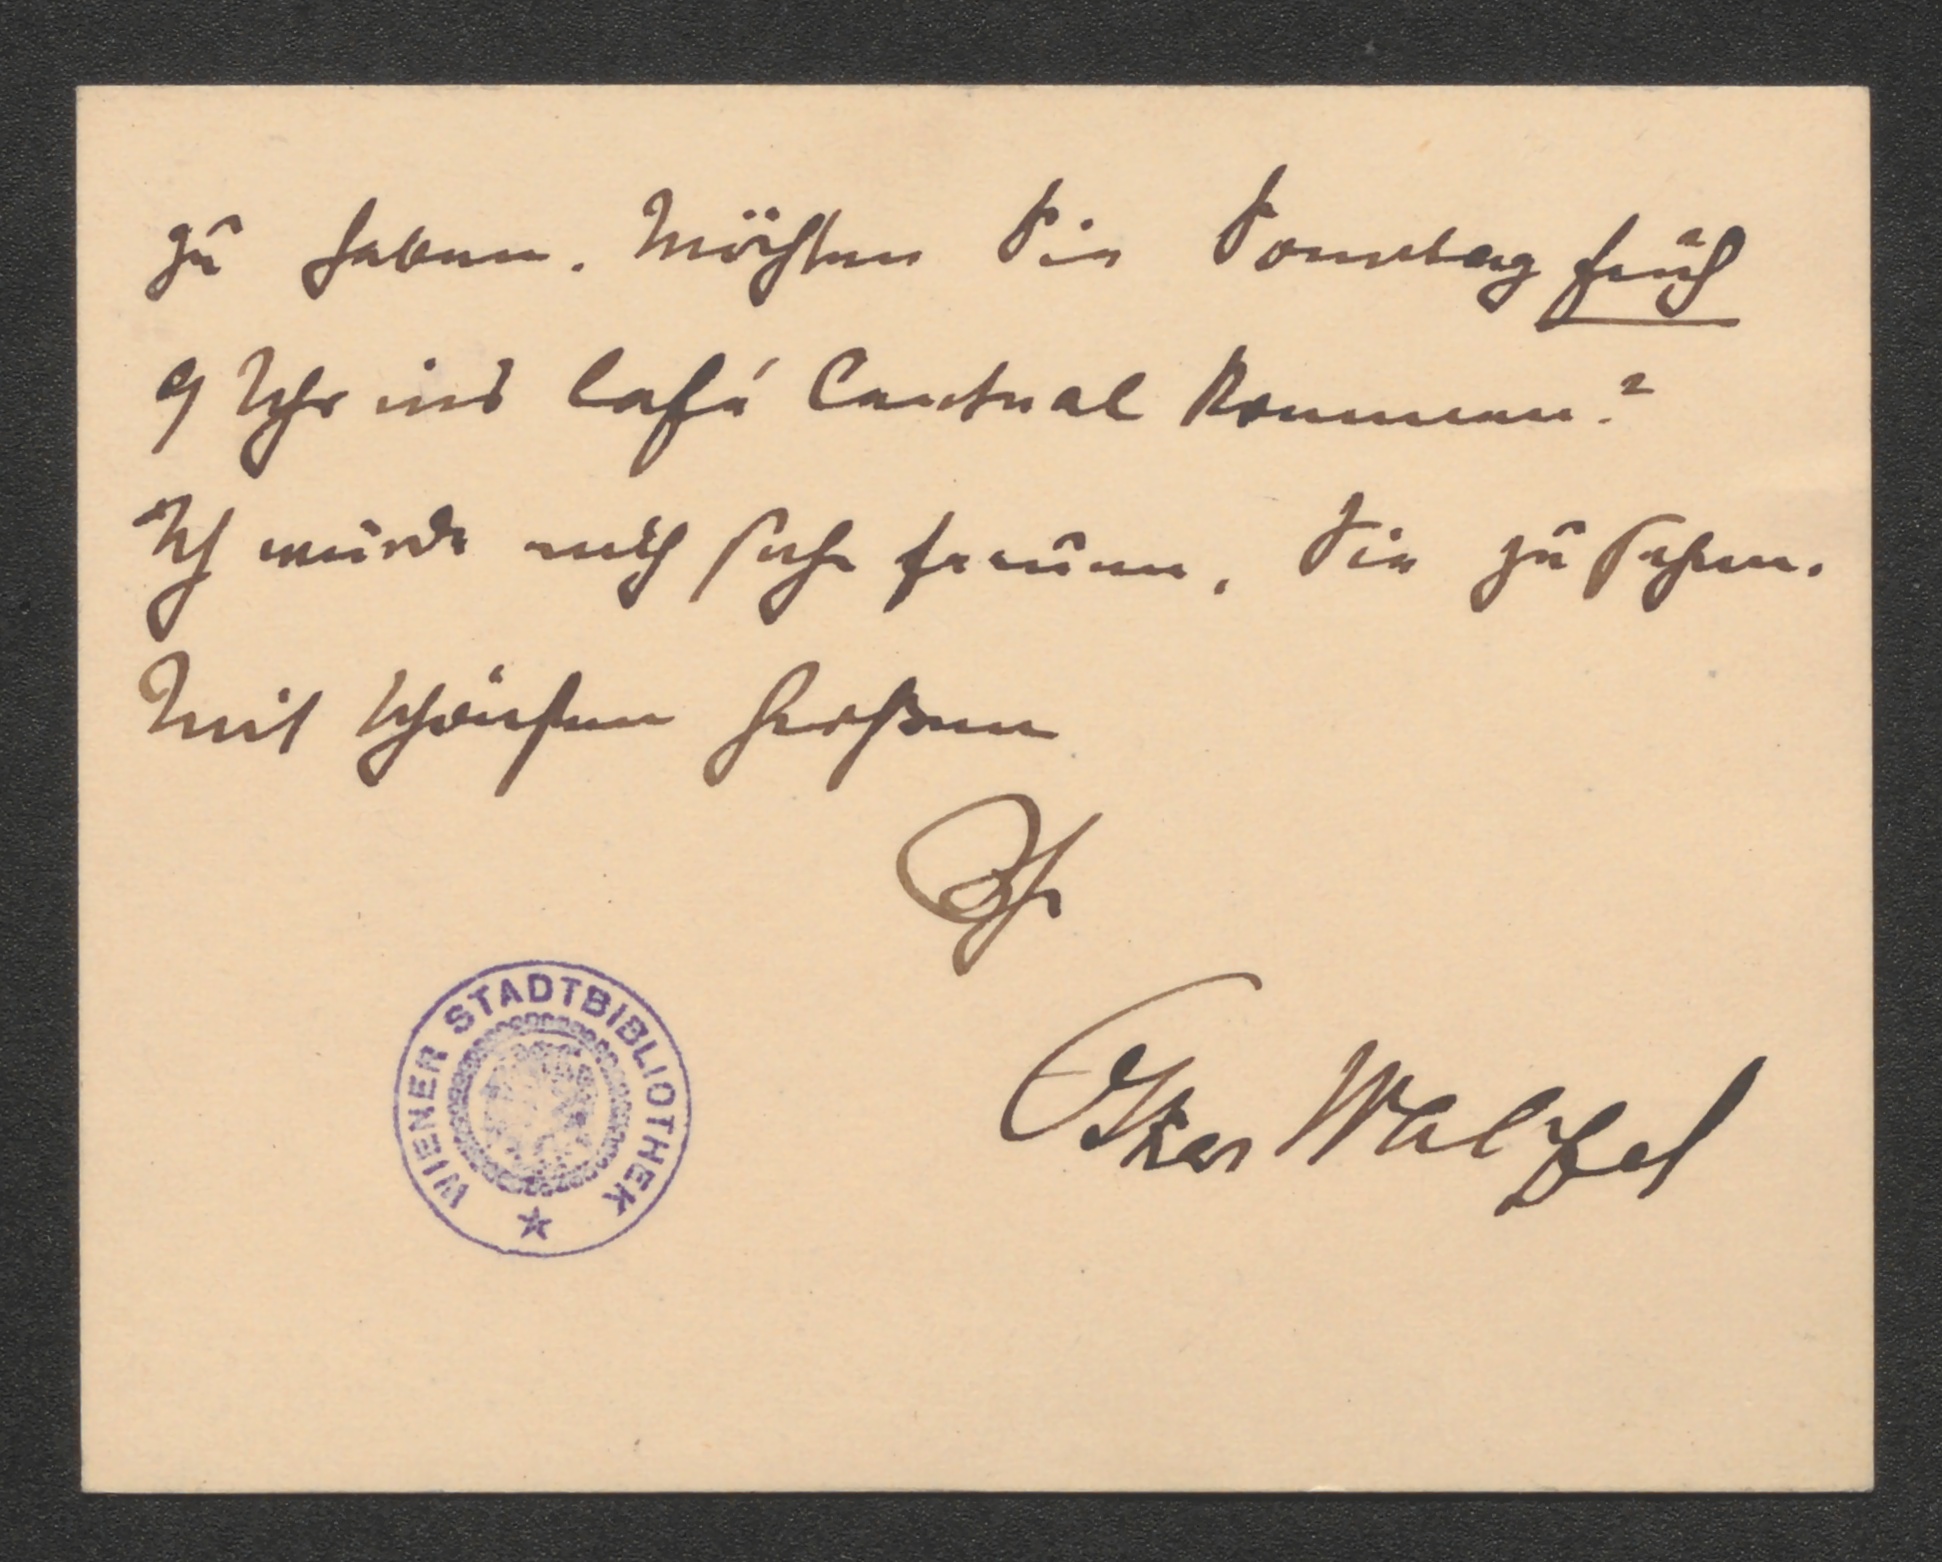 zu haben. Möchten Sie Sonntag früh
9 Uhr ins Café Central kommen?
Ich würde mich sehr freuen, Sie zu sehen.
Mit schönsten Grüßen
Ihr
Oskar Walzel
WIENER STADTBIBLIOTHEK